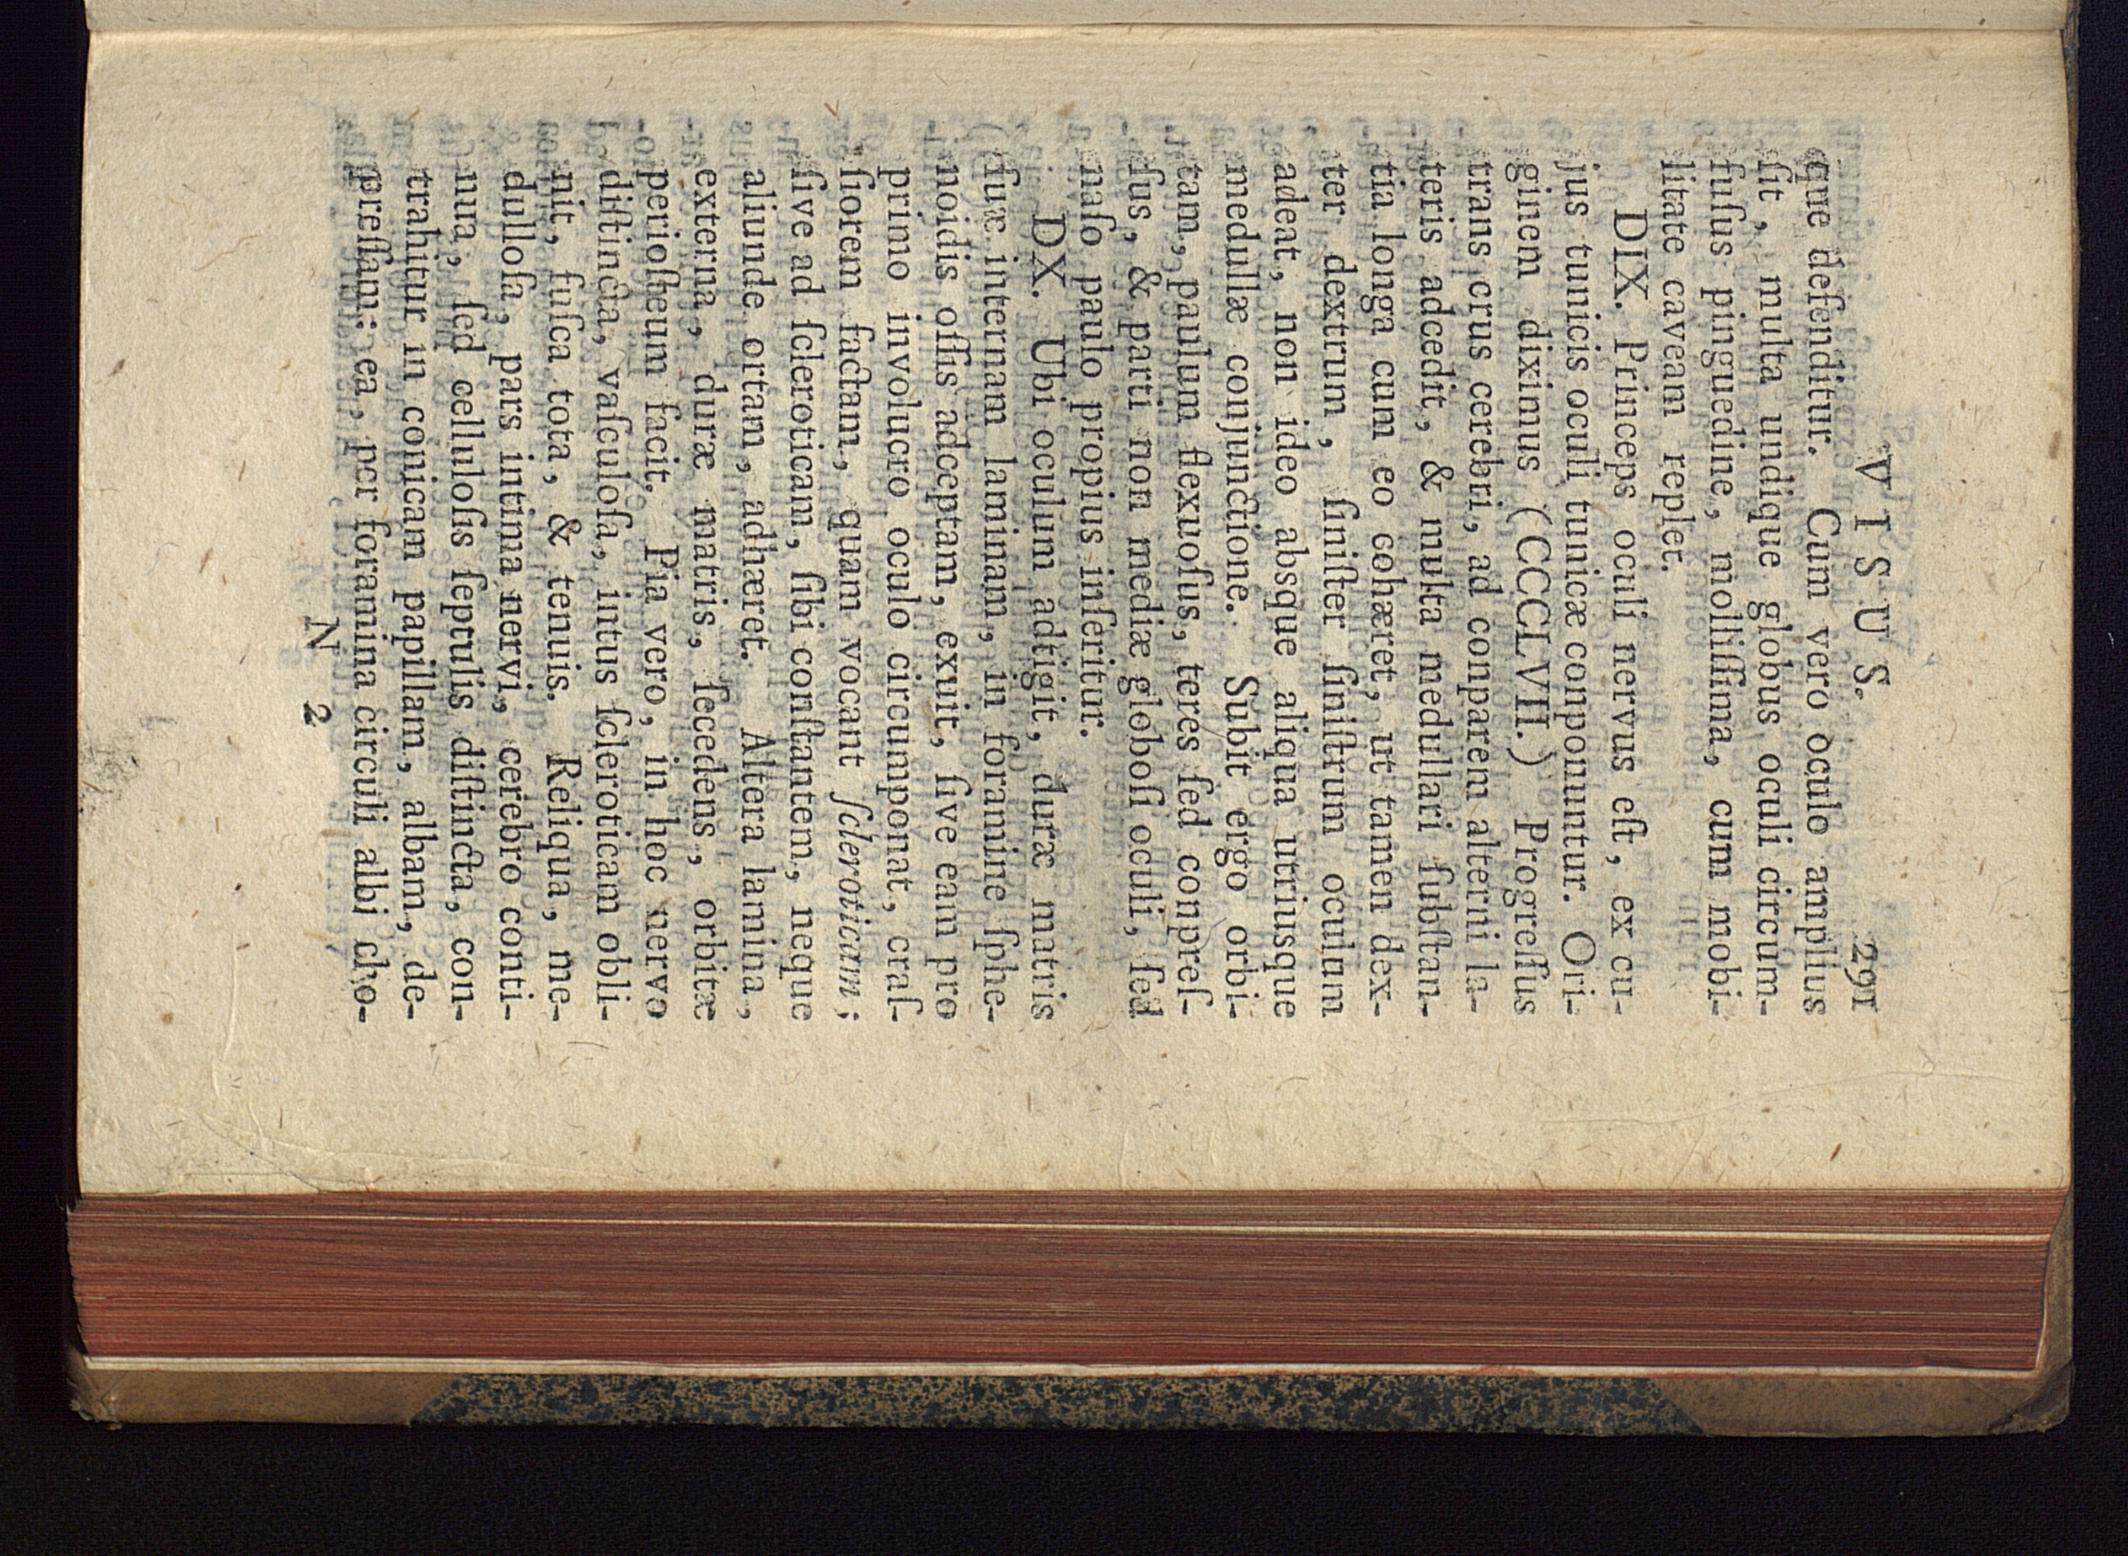 VISUS. 291
que defenditur. Cum vero oculo amplius
ſit, multa undique globus oculi circum-
fuſus pinguedine, molliſſima, cum mobi-
litate caveam replet.
DIX. Princeps oculi nervus eſt, ex cu-
jus tunicis oculi tunicæ conponuntur. Ori-
ginem diximus (CCCLVII.) Progreſſus
trans crus cerebri, ad conparem alterni la-
teris adcedit, & multa medullari ſubſtan-
tia longa cum eo cohæret, ut tamen dex-
ter dextrum, ſiniſter ſiniſtrum oculum
adeat, non ideo absque aliqua utriusque
medullæ conjunctione. Subit ergo orbi-
tam, paulum flexuoſus, teres ſed conpreſ-
ſus, & parti non mediæ globoſi oculi, ſed
naſo paulo propius inſeritur.
DX. Ubi oculum adtigit, duræ matris
ſuæ internam laminam, in foramine ſphe-
noidis oſſis adceptam, exuit, ſive eam pro
primo involucro oculo circumponat, craſ-
ſiorem factam, quam vocant ſcleroticam;
ſive ad ſcleroticam, ſibi conſtantem, neque
aliunde ortam, adhæret. Altera lamina,
externa, duræ matris, ſecedens, orbitæ
perioſteum facit. Pia vero, in hoc nervo
diſtincta, vaſculoſa, intus ſcleroticam obli-
nit, fuſca tota, & tenuis. Reliqua, me-
dulloſa, pars intima nervi, cerebro conti-
nua, ſed celluloſis ſeptulis diſtincta, con-
trahitur in conicam papillam, albam, de-
preſſam: ea, per foramina circuli albi cho-
N 2